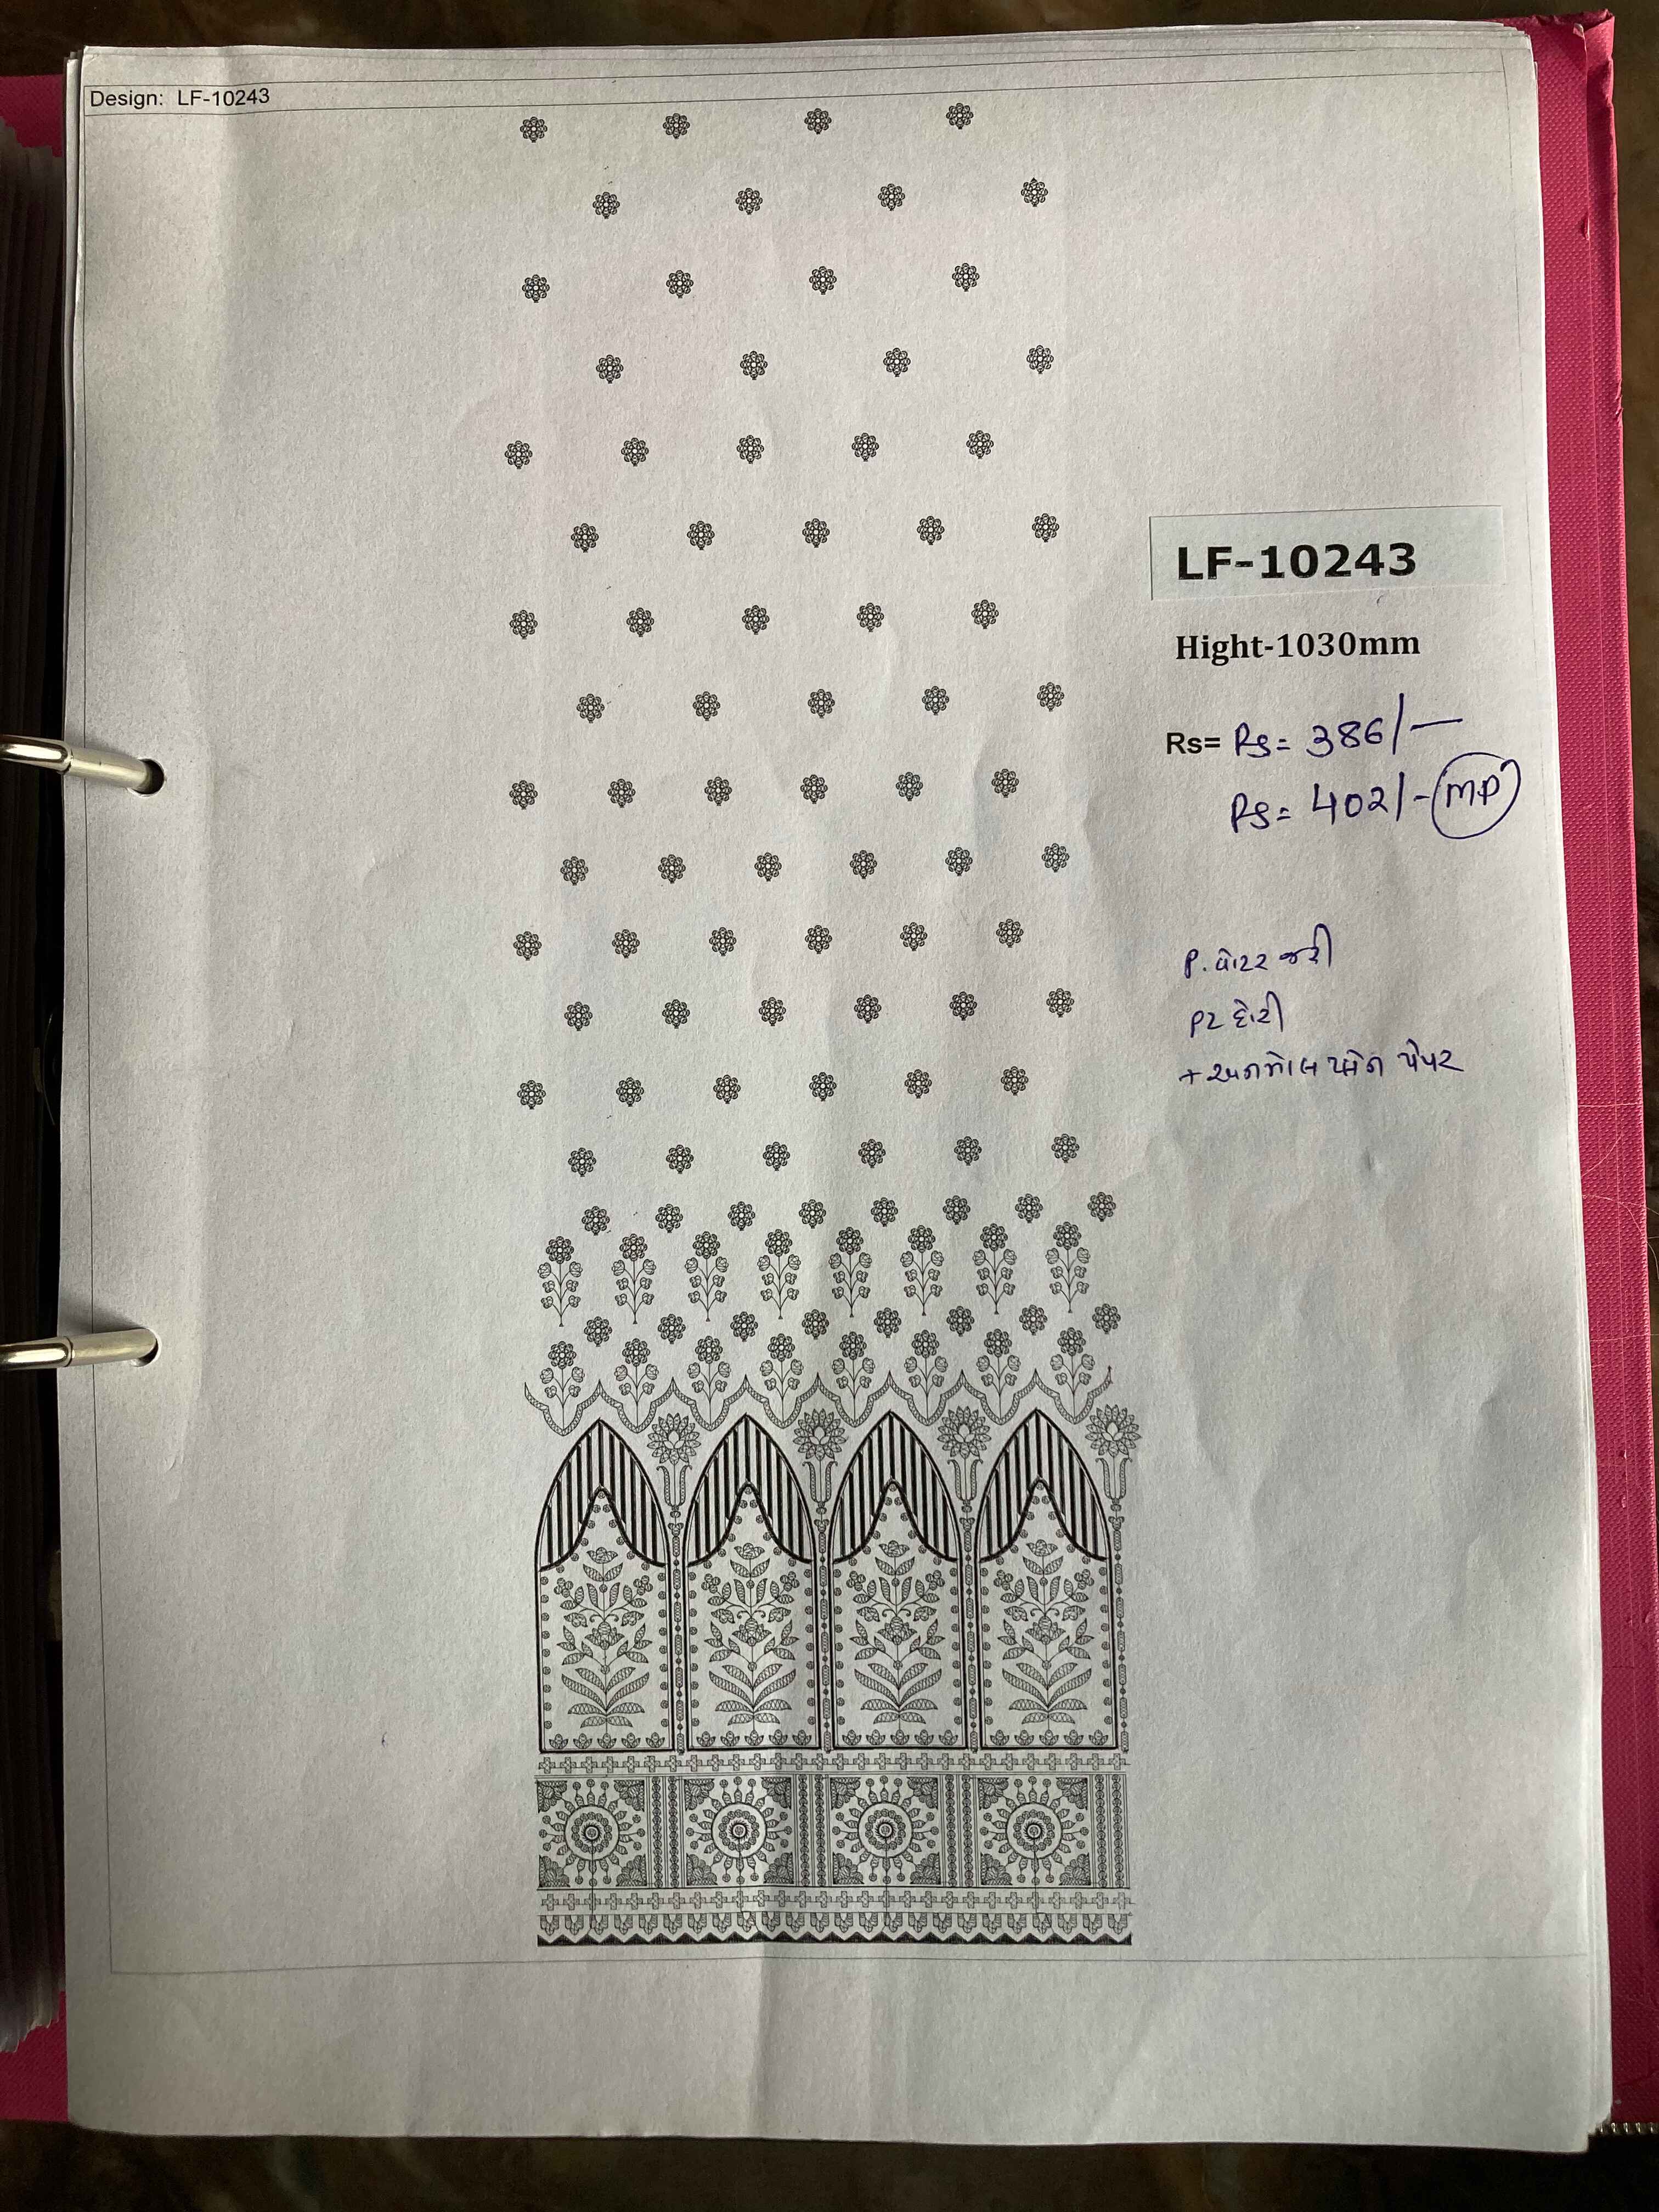 Design: LF-10243
LF-10243
Hight-1030mm
Rs= Rs= 386/-
Rs= 402/- MP
P. વોટર જરી
P2 દોરી
+ અનમોલ પેપર